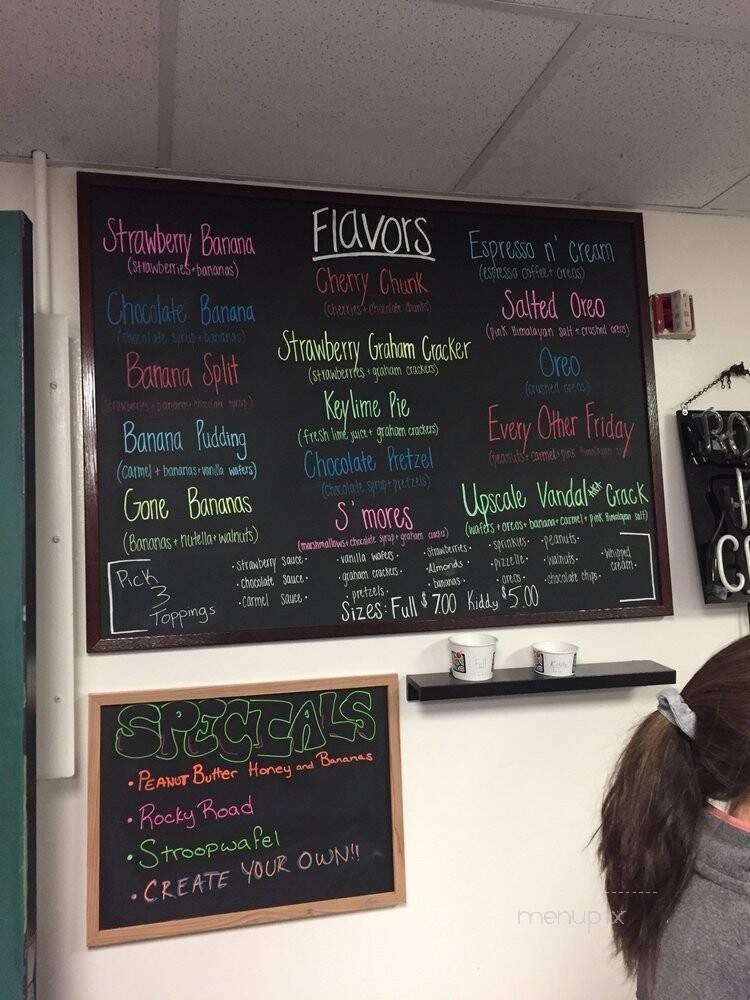 Flavors
Strawberry Banana
(strawberries + bananas)
Chocolate Banana
(chocolate syrup + bananas)
Banana Split
(strawberries + banana + chocolate syrup)
Banana Pudding
(carmel + bananas + vanilla wafers)
Gone Bananas
(Bananas + nutella + walnuts)
Cherry Chunk
(cherries + chocolate chunks)
Strawberry Graham Cracker
(strawberries + graham crackers)
Keylime Pie
(fresh lime juice + graham crackers)
Chocolate Pretzel
(chocolate syrup + pretzels)
S'mores
(marshmallows + chocolate syrup + graham cracker)
Espresso n' cream
(espresso coffee + oreos)
Salted Oreo
(pink Himalayan salt + crushed oreos)
Oreo
(crushed oreos)
Every Other Friday
(peanuts + carmel + pink Himalayan
Upscale Vandal Crack
(wafers + oreos + banana + carmel + pink Himalayan salt)
Pick
3
Toppings
· strawberry sauce ·
· chocolate sauce ·
· carmel sauce ·
· vanilla wafers ·
· graham crackers ·
· pretzels ·
· strawberries ·
· Almonds ·
· bananas ·
· sprinkles ·
· pizzelle ·
· oreos ·
· peanuts ·
· walnuts ·
· chocolate chips ·
· whipped
cream ·
Sizes: Full $7.00 Kiddy $5.00
Full
Kiddy
SPECIALS
· Peanut Butter Honey and Bananas
· Rocky Road
· Stroopwafel
· CREATE YOUR OWN!!
RO
C
menupix